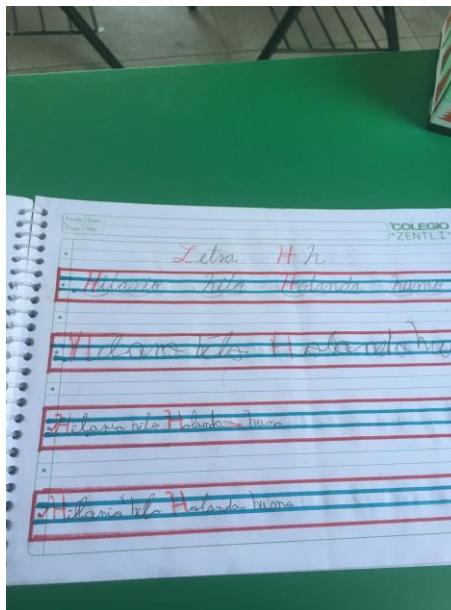 COLEGIO
"ZENTLI"
Letra H h
Hilario hilo Holanda humo
Hilaro hilo Holanda hu
Hilario hilo Holanda humo
Hillario hilo Holanda humo